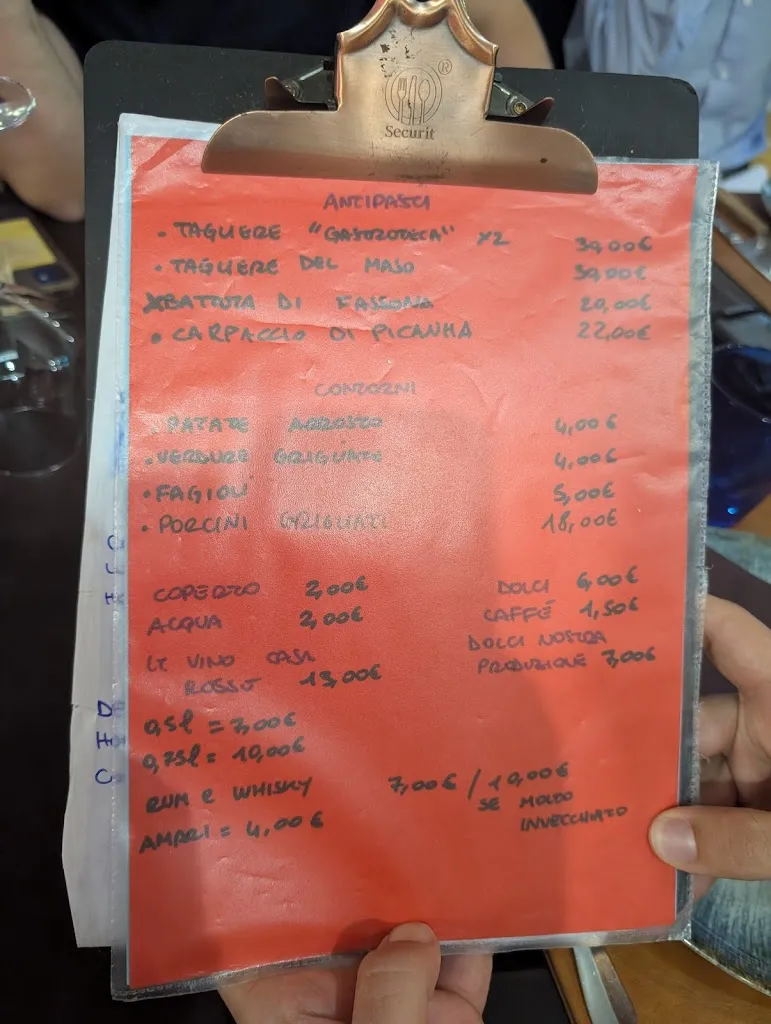 ®
Securit
ANTIPASTI
• TAGLIERE "GASTROTECA" X2 30,00€
• TAGLIERE DEL MASO 30,00€
BATTUTA DI FASSONA 20,00€
• CARPACCIO DI PICANHA 22,00€
CONTORNI
• PATATE ARROSTO 4,00€
• VERDURE GRIGLIATE 4,00€
• FAGIOLI 5,00€
• PORCINI GRIGLIATI 18,00€
COPERTO 2,00€
ACQUA 2,00€
LT VINO CASA
ROSSO 13,00€
0,5l = 7,00€
0,75l = 10,00€
RUM e WHISKY 7,00€ / 10,00€
SE MOLTO
INVECCHIATO
AMARI = 4,00€
DOLCI 6,00€
CAFFÉ 1,50€
DOLCI NOSTRA
PRODUZIONE 7,00€